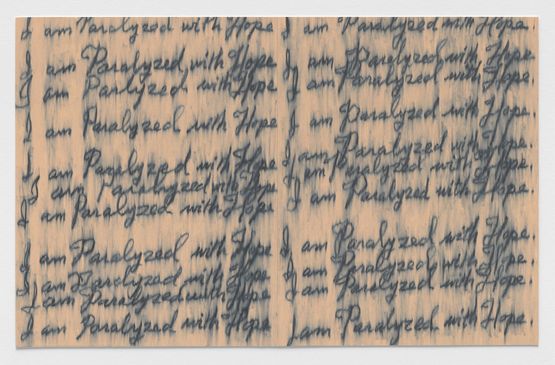 I am Paralyzed with Hope
I am Paralyzed with Hope
I am Parlyzed with Hope
I am Paralyzed with Hope
I am Paralyzed with Hope
I am Paralyzed with Hope
I am Paralyzed with Hope
I am Paralyzed with Hope
I am Paralyzed with Hope
I am Paralyzed with Hope
I am Paralyzed with Hope
I am Paralyzed with Hope.
I am Paralyzed with Hope.
I am Paralyzed with Hope.
I am Paralyzed with Hope.
I am Paralyzed with Hope.
I am Paralyzed with Hope.
I am Paralyzed with Hope.
I am Paralyzed with Hope.
I am Paralyzed with Hope.
I am Paralyzed with Hope.
I am Paralyzed with Hope.